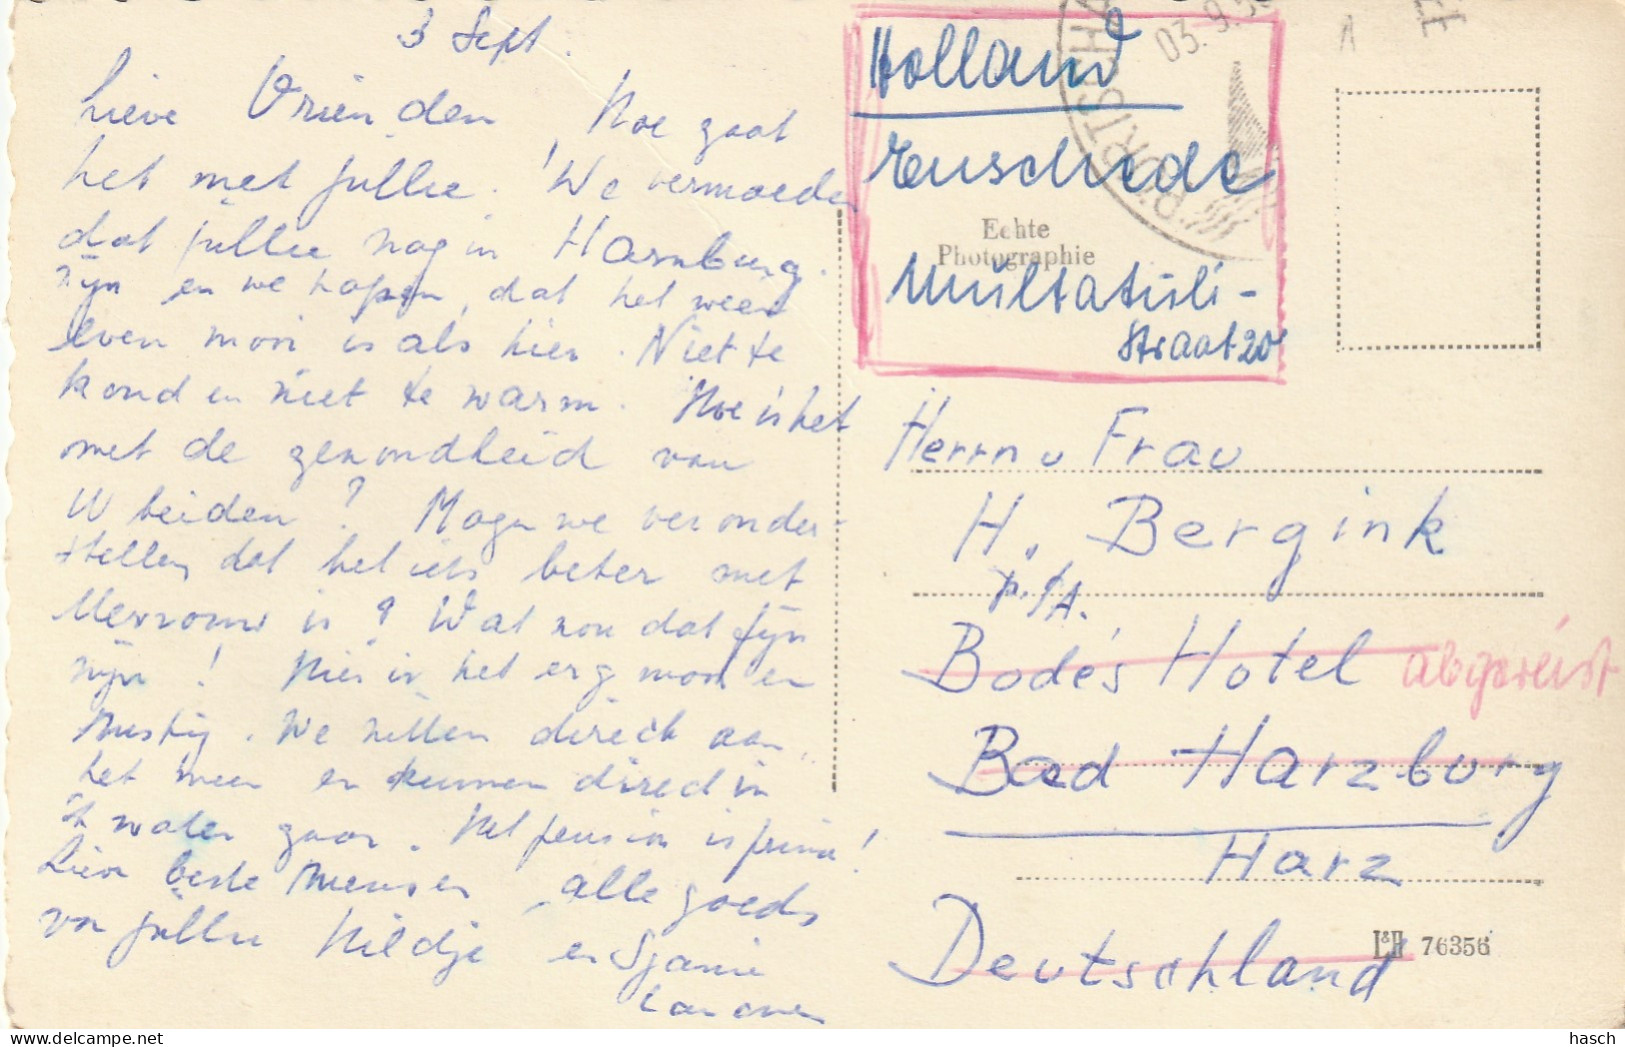 3 Sept.
Lieve Vrienden, Hoe gaat
het met jullie. We vermoeden
dat jullie nog in Harzburg
zijn en we hopen, dat het weer
even mooi is als hier. Niet te
koud en niet te warm. Hoe is het
met de gezondheid van
U beiden? Mogen we veronder-
stellen dat het iets beter met
Mevrouw is? Wat zou dat fijn
zijn! Hier is het erg mooi en
rustig. We zitten direct aan
het meer en kunnen direct in
't water gaan. Het pension is prima!
Lieve beste mensen, alle goeds
voor jullie Hildje en
Holland
Enschede
Multatuli-
straat 20
Echte
Photographie
03.9.5
Herrn u Frau
H. Bergink
p./A.
Bode's Hotel abgereist
Bad Harzburg
Harz
Deutschland
L&H 76356
© hasch